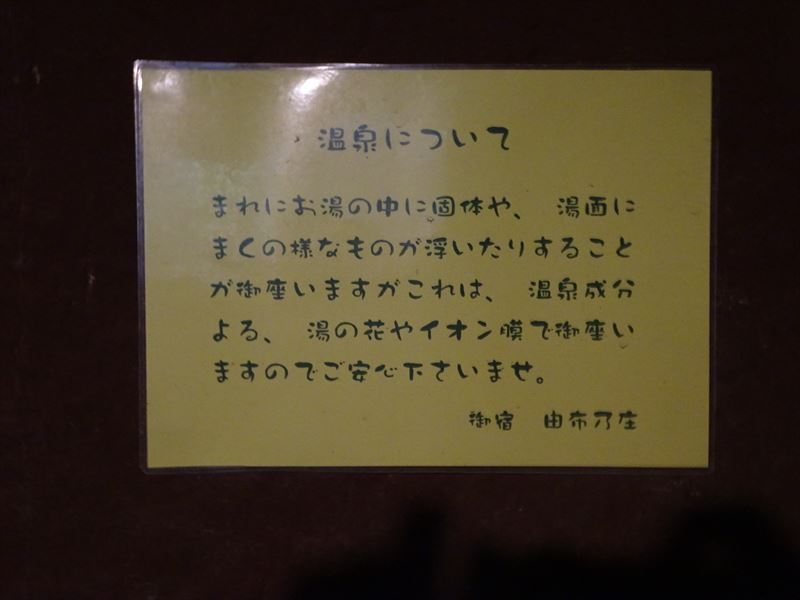 温泉について
まれにお湯の中に固体や、 湯面に
まくの様なものが浮いたりすること
が御座いますがこれは、 温泉成分
よる、 湯の花やイオン膜で御座い
ますのでご安心下さいませ。
御宿 由布乃庄